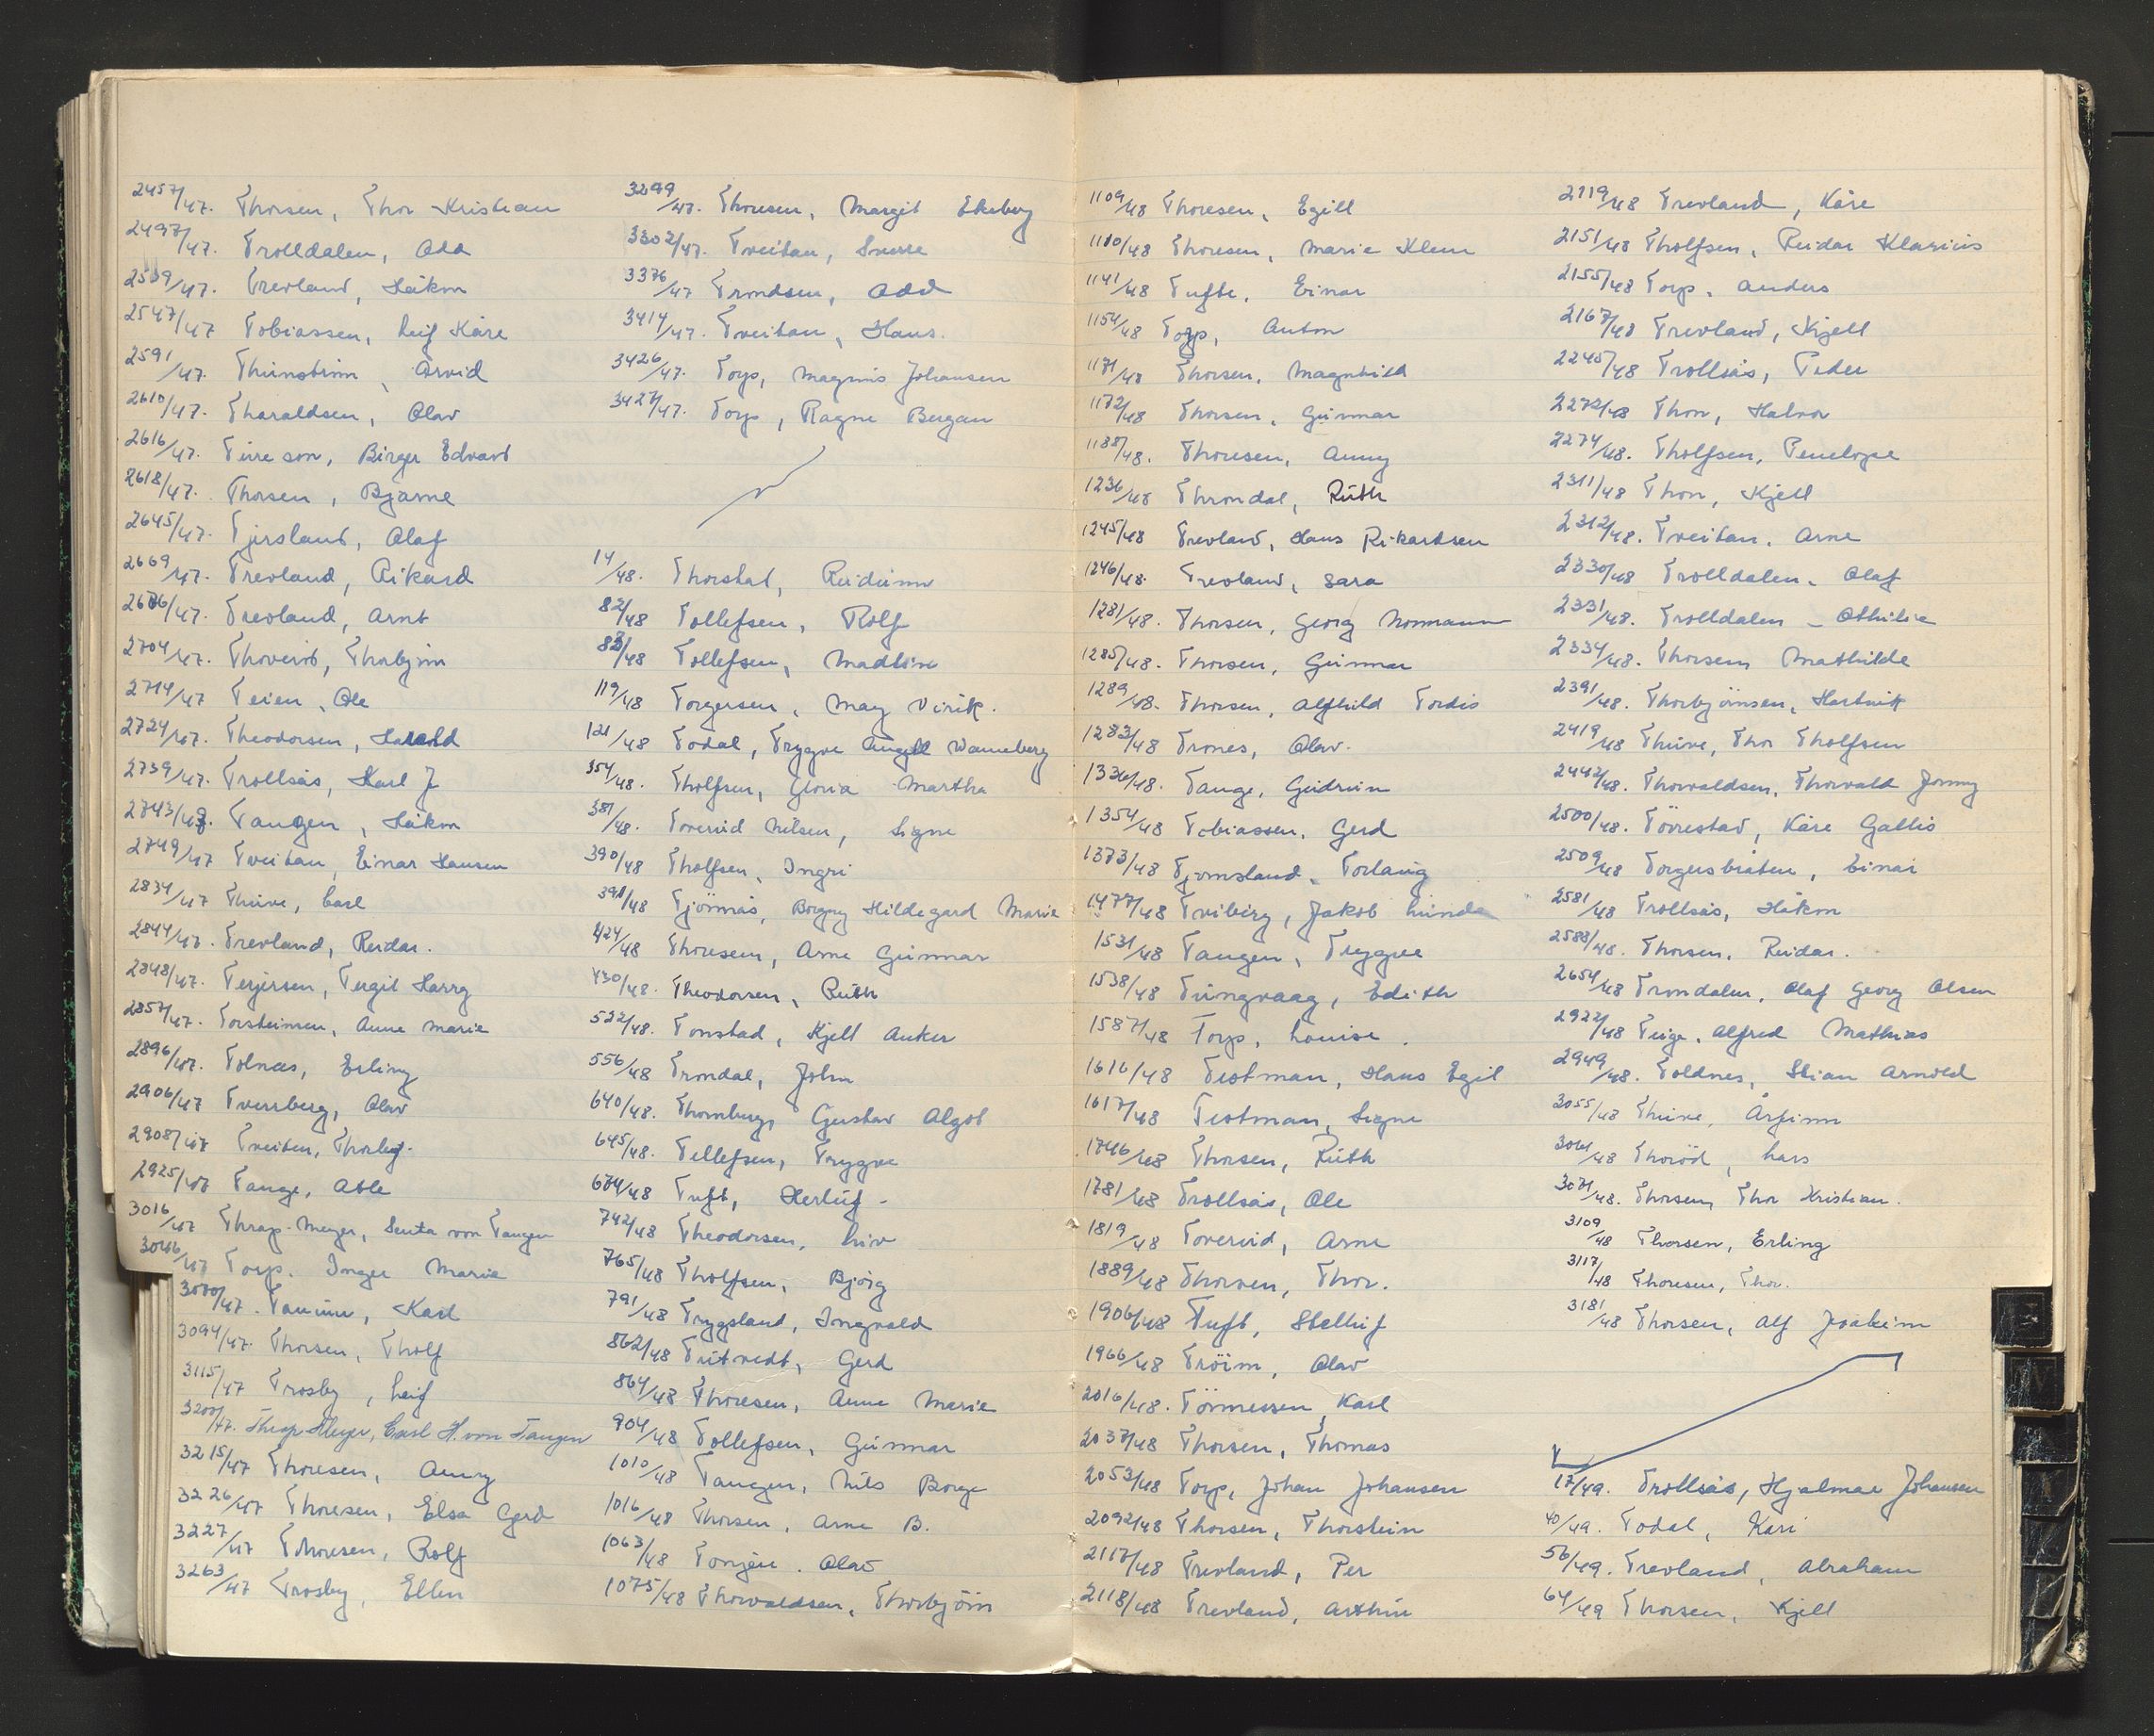 2457/47. Thorsen, Thor Kristian
2497/47. Trolldalen, Odd
2509/47. Trevland, Håkon
2547/47 Tobiassen, Leif Kåre
2591/47. Arvid
2610/47. Tharaldsen, Olav
2616/47. Birger Edvard
2618/47. Thorsen, Bjarne
2645/47. Tjersland, Olaf
2669/47. Trevland, Rikard
2676/47. Trevland, Arnt
2704/47. Thorbjørn
2714/47 Teien, Ole
2724/47. Theodorsen, Harald
2739/47. Trollsås, Karl J
2743/47. Tangen, Håkon
2749/47 Tveitan, Einar Hansen
2834/47 Thune, Carl
2844/47. Trevland, Reidar.
2848/47. Terjersen, Tergil Harry
2857/47. Torsteinsen, Anne Marie
2896/47. Tolnæs, Erling
2906/47 Tverrberg, Olav
2908/47 Tveiten, Thorleif.
2925/47 Tange, Atle
3016/47 Thrap-Meyer, Senta von Tangen
3046/47 Torp, Inger Marie
3080/47. Karl
3094/47. Thorsen, Tholf
3115/47 Trosby, Leif
3200/47. Thrap Meyer, Carl H. von Tangen
3215/47 Thoresen, Anny
3226/47 Thoresen, Elsa Gerd
3227/47 Thoresen, Rolf
3263/47 Trosby, Ellen
3299/47. Thoresen, Margit Eksberg
3302/47. Tveitan, Sverre
3376/47 Trondsen, Odd
3414/47. Tveitan, Hans.
3426/47. Torp, Magnus Johansen
3427/47. Torp, Ragne Bergan
14/48. Thorstad, Reidunn
82/48 Tollefsen, Rolf
83/48 Tollefsen, Madline
119/48 Torgersen, May Virik.
121/48 Todal, Trygve Angell Wanneberg
354/48. Tholfsen, Gloria Martha
381/48. Toverud Nilsen, Signe
390/48 Tholfsen, Ingri
391/48 Tjönnås, Borgny Hildegard Marie
424/48 Thoresen, Arne Gunnar
430/48. Theodorsen, Ruth
522/48. Tonstad, Kjell Anker
556/48 Trondal, John
640/48. Thornberg, Gustav Algot
645/48. Tellefsen, Trygve
674/48 Tuft, Herluf -
742/48 Theodorsen, Liv
765/48 Tholfsen, Bjørg
791/48 Trygsland, Ingvald
862/48 Tutvedt, Gerd
864/48 Thoresen, Anne Marie
904/48 Tollefsen, Gunnar
1010/48 Tangen, Nils Borge
1016/48 Thorsen, Arne B.
1063/48 Olav
1075/48 Thorvaldsen, Thorbjörn
1109/48 Thoresen, Egill
1110/48 Thoresen, Marie Klem
1141/48 Tufte, Einar
1154/48 Torp, Anton
1171/48 Thorsen, Magnhild
1172/48 Thorsen, Gunnar
1188/48. Thoresen, Anny
1236/48 Throndal, Ruth
1245/48 Trevland, Hans Rikardsen
1246/48. Trevland, Sara
1281/48. Thorsen, Georg Normann
1285/48. Thorsen, Gunnar
1289/48. Thorsen, Alfhild Tordis
1283/48 Trones, Olav.
1336/48. Tange, Gudrun
1354/48 Tobiassen, Gerd
1373/48 Tjomsland, Torlaug
1477/48 Tviberg, Jakob Lunda
1531/48 Tangen, Trygve
1538/48 Tungvaag, Edith
1587/48 Torp, Louise.
1616/48 Testman, Hans Egil
1617/48 Testman, Signe
1746/48 Thorsen, Ruth
1781/48 Trollsås, Ole
1819/48 Toverud, Arne
1889/48 Thorsen, Thor.
1906/48 Tuft,
1966/48 Tröim, Olav
2016/48. Tönnessen, Karl
2037/48 Thorsen, Thomas
2053/48 Torp, Johan Johansen
2092/48 Thorsen, Thorstein
2117/48 Trevland, Per
2118/48 Trevland, Arthur
2119/48 Trevland, Kåre
2151/48 Tholfsen, Reidar Klarius
2155/48 Torp, Anders
2167/48 Trevland, Kjell
2245/48 Trollsås, Peder
2272/48 Thon, Halvor
2274/48. Tholfsen, Penelope
2311/48 Thon, Kjell
2312/48. Tveitan, Arne
2330/48 Trolldalen, Olaf
2331/48. Trolldalen - Othilie
2334/48. Thorsen, Mathilde
2391/48. Thorbjörnsen, Hartvik
2419/48 Thune, Thor Tholfsen
2442/48. Thorvaldsen, Thorvald Jonny
2500/48. Törrestad, Kåre Gallis
2509/48 Torgersbråten, Einar
2581/48 Trollsås, Håkon
2588/48. Thorsen, Reidar.
2654/48 Trondalen, Olaf Georg Olsen
2922/48 Teige, Alfred Mathias
2949/48. Toldnes, Stian Arnold
3055/48 Thune, Arfinn
3061/48 Thoröd, Lars
3071/48. Thorsen, Thor Kristian.
3109/48 Thorsen, Erling
3117/48 Thoresen, Thor.
3181/48 Thorsen, Alf Joakim
17/49. Trollsås, Hjalmar Johansen
40/49. Todal, Kari
56/49. Trevland, Abraham
64/49 Thorsen, Kjell